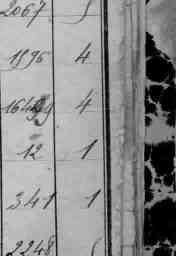 2067
1596 4
4
12 1
341 1
2248